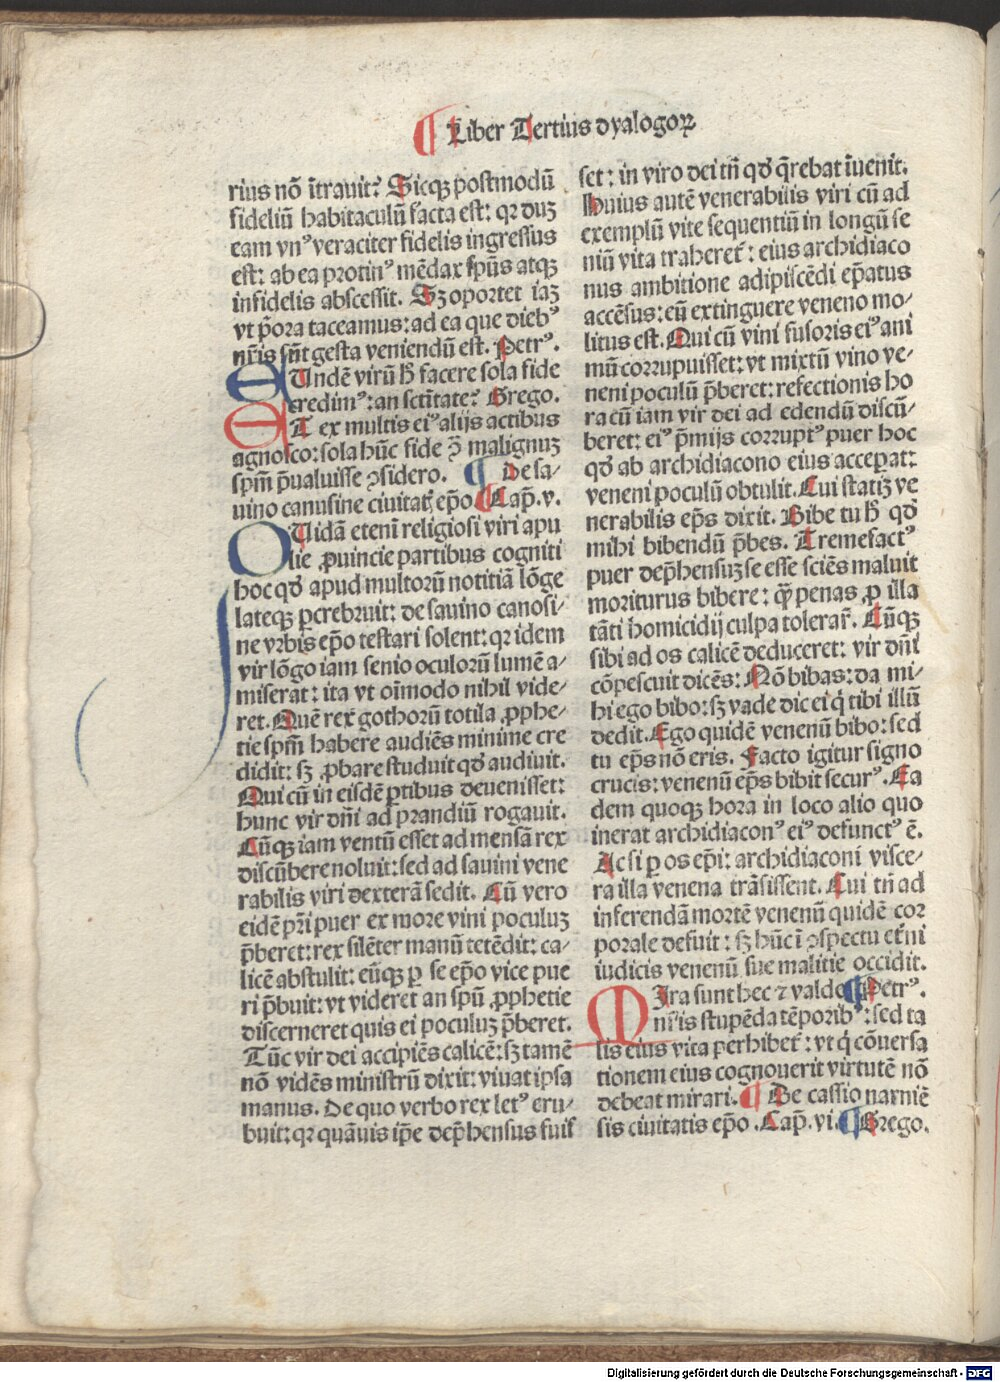 ¶ Liber Tertius dyalogoꝝ
rius nō ītrauit? Sicqꝫ postmodū
fideliū habitaculū facta est: qꝛ duꝫ
eam vnꝰ veraciter fidelis ingressus
est: ab ea protinꝰ mēdax spūs atqꝫ
infidelis abscessit. Sꝫ oportet iaꝫ
vt p̄ora taceamus: ad ea que diebꝰ
nr̄is sūt gesta veniendū est. Petrꝰ.
EUndē virū hͦ facere sola fide
credimꝰ: an sctītate? Grego.
ET ex multis eiꝰ alijs actibus
agnosco: sola hūc fide ꝯ̄ malignuꝫ
spm̄ p̄ualuisse ꝯsidero. ¶ De sa⸗
uino canusine ciuitatꝭ ep̄o ¶ Cap̄. v.
QUidā etenī religiosi viri apu
lie ꝓuincie partibus cogniti
hoc qd̓ apud multorū notitiā lōge
lateqꝫ ꝑcrebruit: de sauino canosi⸗
ne vrbis ep̄o testari solent: qꝛ idem
vir lōgo iam senio oculorū lumē a⸗
miserat: ita vt oīmodo nihil vide⸗
ret. Quē rex gothorū totila ꝓphe⸗
tie spm̄ habere audiēs minime cre
didit: sꝫ ꝓbare studuit qd̓ audiuit.
Qui cū in eisdē ꝑtibus deuenisset:
hunc vir dn̄i ad prandiū rogauit.
Cūqꝫ iam ventū esset ad mensā rex
discūbere noluit: sed ad sauini vene
rabilis viri dexterā sedit. Cū vero
eidē pr̄i puer ex more vini poculuꝫ
p̄beret: rex silēter manū tetēdit: ca⸗
licē abstulit: eūqꝫ ꝑ se ep̄o vice pue
ri p̄buit: vt videret an spū ꝓphetie
discerneret quis ei poculuꝫ p̄beret.
Tūc vir dei accipiēs calicē: sꝫ tamē
nō vidēs ministrū dixit: viuat ipsa
manus. De quo verbo rex letꝰ eru⸗
buit: qꝛ quāuis ip̄e dep̄hensus fuis
set: in viro dei tn̄ qd̓ q̄rebat īuenit.
Huius autē venerabilis viri cū ad
exemplū vite sequentiū in longū se
niū vita traheret̄: eius archidiaco
nus ambitione adipiscēdi ep̄atus
accēsus: eū extinguere veneno mo⸗
litus est. Qui cū vini fusoris eiꝰ ani
mū corrupuisset: vt mixtū vino ve⸗
neni poculū p̄beret: refectionis ho
ra cū iam vir dei ad edendū discū⸗
beret: eiꝰ p̄mijs corruptꝰ puer hoc
qd̓ ab archidiacono eius acceperat:
veneni poculū obtulit. Cui statiꝫ ve
nerabilis ep̄s dixit. Bibe tu hͦ qd̓
mihi bibendū p̄bes. Tremefactꝰ
puer dep̄hensuꝫ se esse sciēs maluit
moriturus bibere: qͣꝫ penas ꝓ illa
tāti homicidij culpa tolerar̄. Cūqꝫ
sibi ad os calicē deduceret: vir dn̄i
cōpescuit dicēs: Nō bibas: da mi⸗
hi ego bibo: sꝫ vade dic ei qͥ tibi illū
dedit. Ego quidē venenū bibo: sed
tu ep̄s nō eris. Facto igitur signo
crucis: venenū ep̄s bibit securꝰ. Ea
dem quoqꝫ hora in loco alio quo
inerat archidiaconꝰ eiꝰ defunctꝰ ē.
Ac si ꝑ os ep̄i: archidiaconi visce⸗
ra illa venena trāsissent. Cui tn̄ ad
inferendā mortē venenū quidē cor
porale defuit: sꝫ hūc ī ꝯspectu et̄ni
iudicis venenū sue malitie occidit.
MIra sunt hec ⁊ valde ¶ Petrꝰ.
nr̄is stupēda tēporibꝰ: sed ta
lis eius vita perhibet̄: vt qͥ cōuersa
tionem eius cognouerit virtutē nō
debeat mirari. ¶ De cassio narniē
sis ciuitatis ep̄o. Cap̄. vi. ¶ Grego.
Digitalisierung gefördert durch die Deutsche Forschungsgemeinschaft - DFG